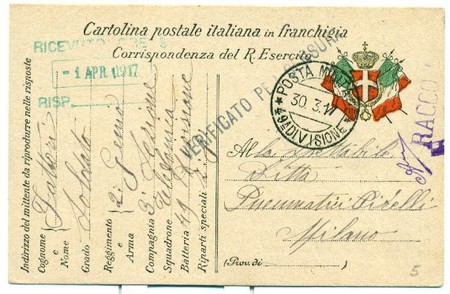 Cartolina postale italiana in franchigia
Corrispondenza del R. Esercito
RICEVUTO
-1 APR 1917
RISP.
VERIFICATO PER CENSURA
POSTA MILITARE
30.3.17
49ª DIVISIONE
RACCO
Indirizzo del mittente da riprodurre nelle risposte
Cognome
e
Nome
Grado Soldato
Reggimento 2º Genio
e
Arma
Compagnia
Squadrone
Batteria 49 Divisione
Riparti speciali
Alla spettabile
Ditta
Pneumatici Pirelli
Milano
(Prov. di )
5